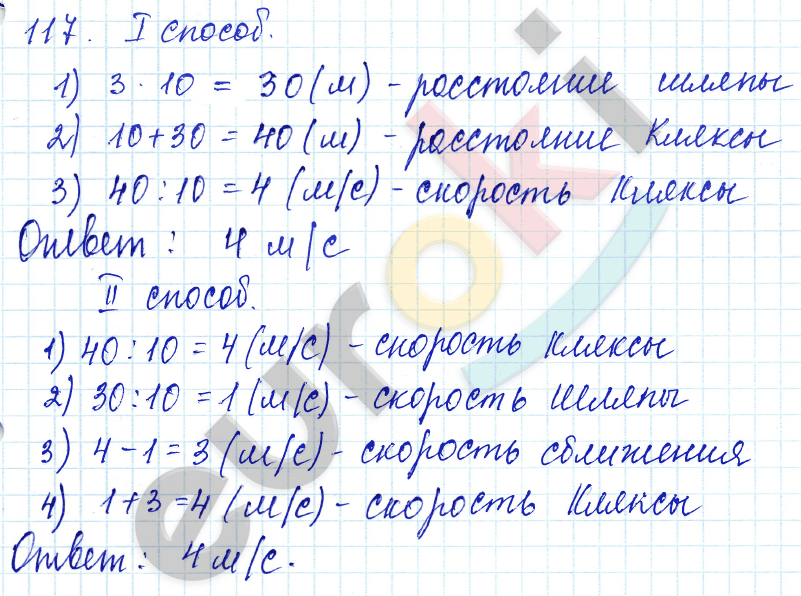 117. I способ.
1) 3 · 10 = 30 (м) - расстояние шляпы
2) 10 + 30 = 40 (м) - расстояние Кляксы
3) 40 : 10 = 4 (м/с) - скорость Кляксы
Ответ: 4 м/с
II способ.
1) 40 : 10 = 4 (м/с) - скорость Кляксы
2) 30 : 10 = 1 (м/с) - скорость Шляпы
3) 4 - 1 = 3 (м/с) - скорость сближения
4) 1 + 3 = 4 (м/с) - скорость Кляксы
Ответ: 4 м/с.
euroki